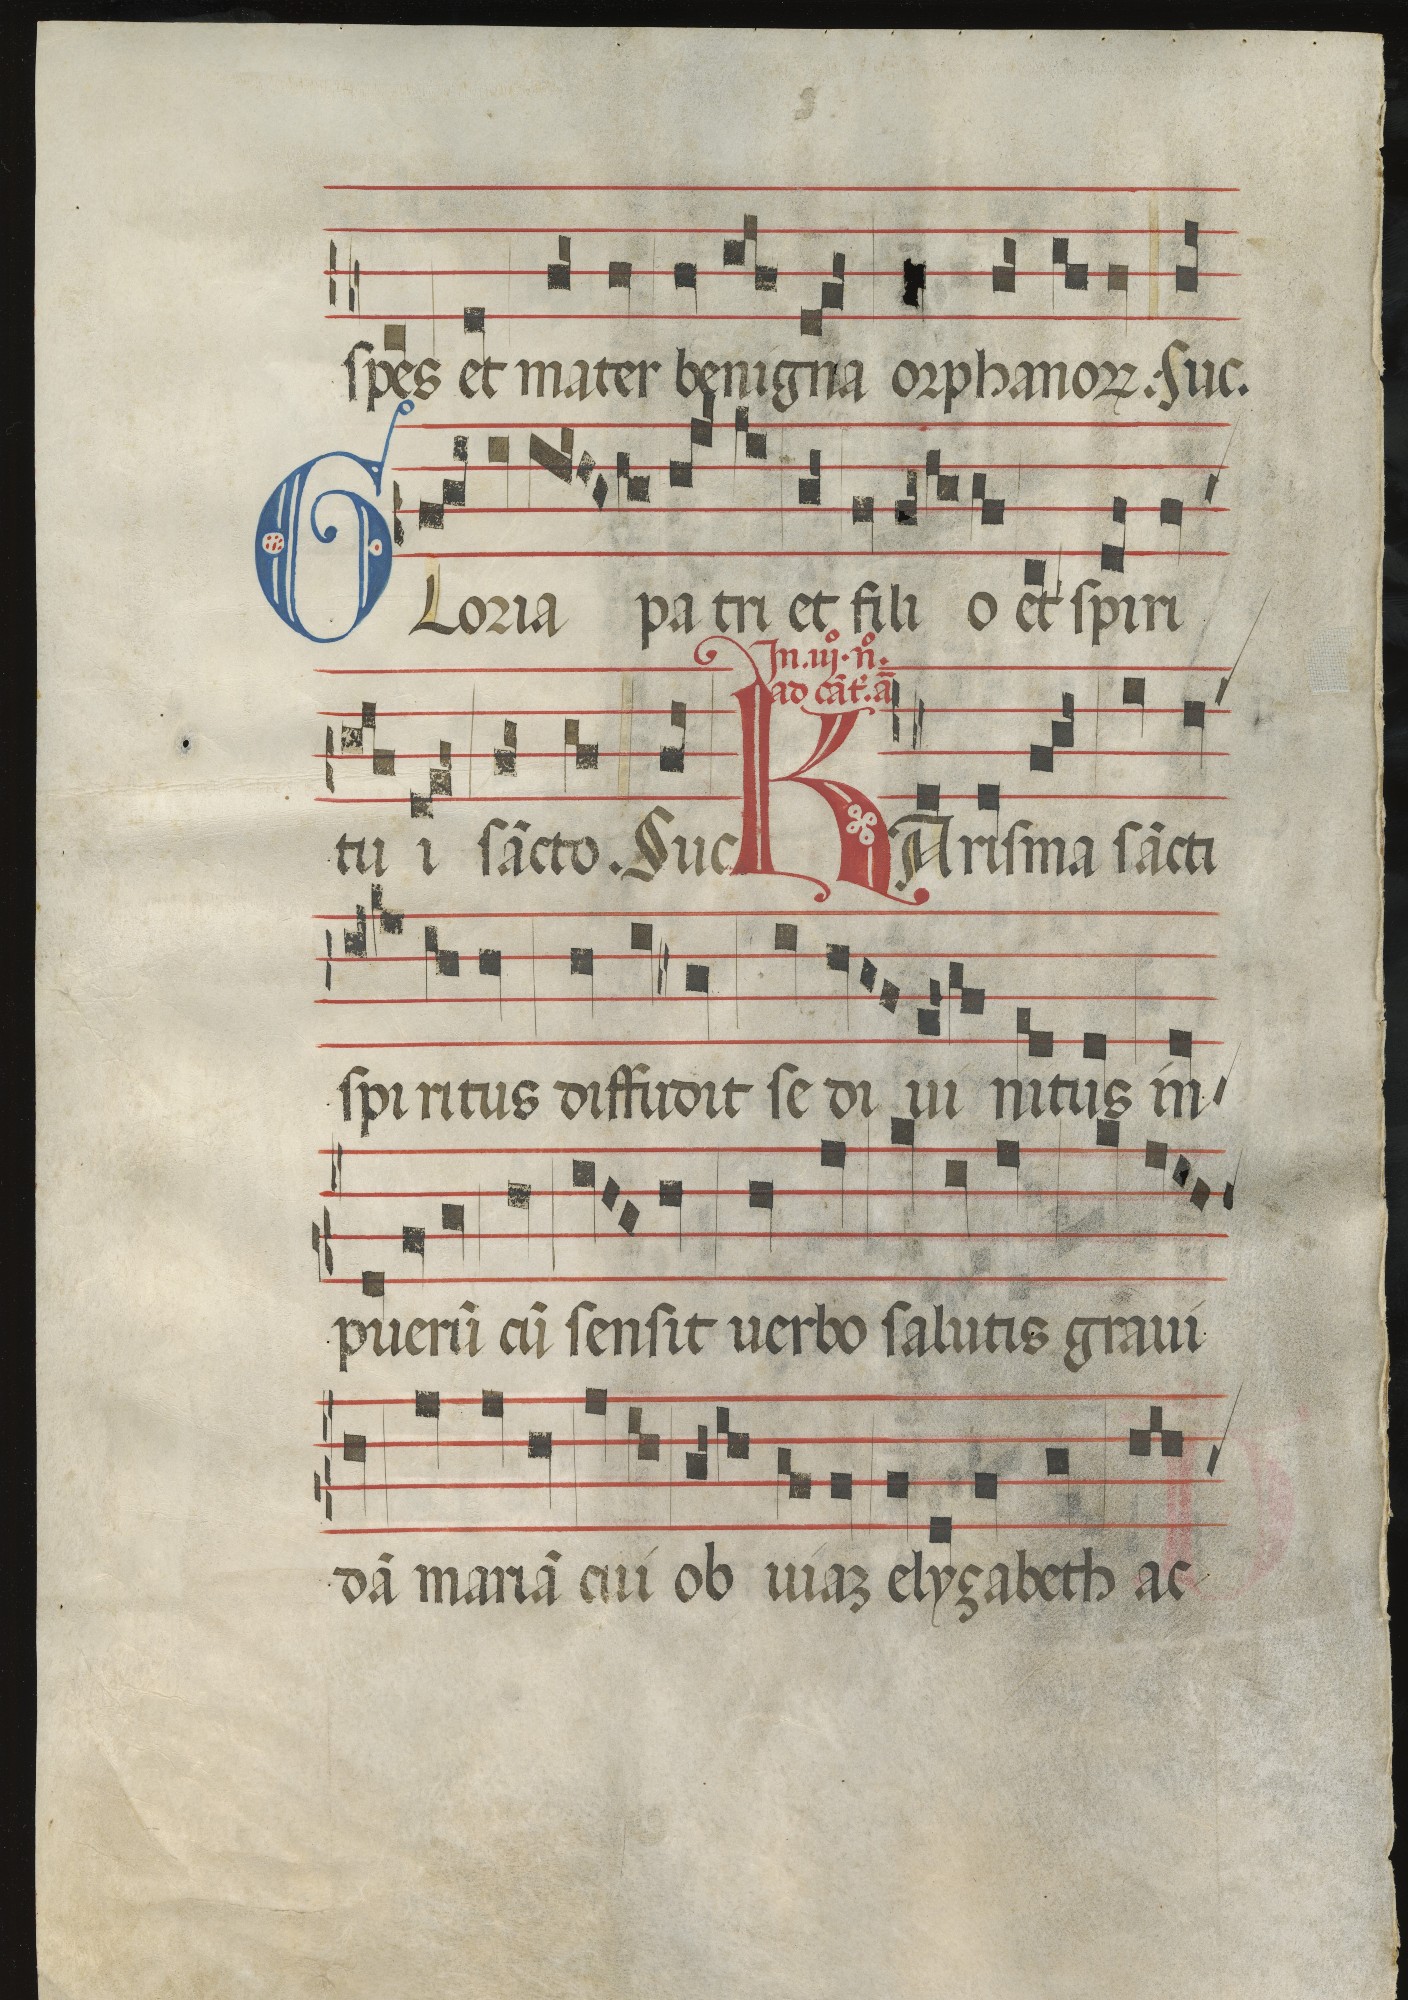 spes et mater benigna orphanoꝝ. Suc.
GLoria pa tri et fili o et spiri
In .iij. nº.
ad cãt. ã
tu i sãcto. Suc KArisma sãcti
spi ritus diffudit se di ui nitus in
puerũ cũ sensit uerbo salutis graui
dã mariã cui ob uiaʒ elyzabeth ac